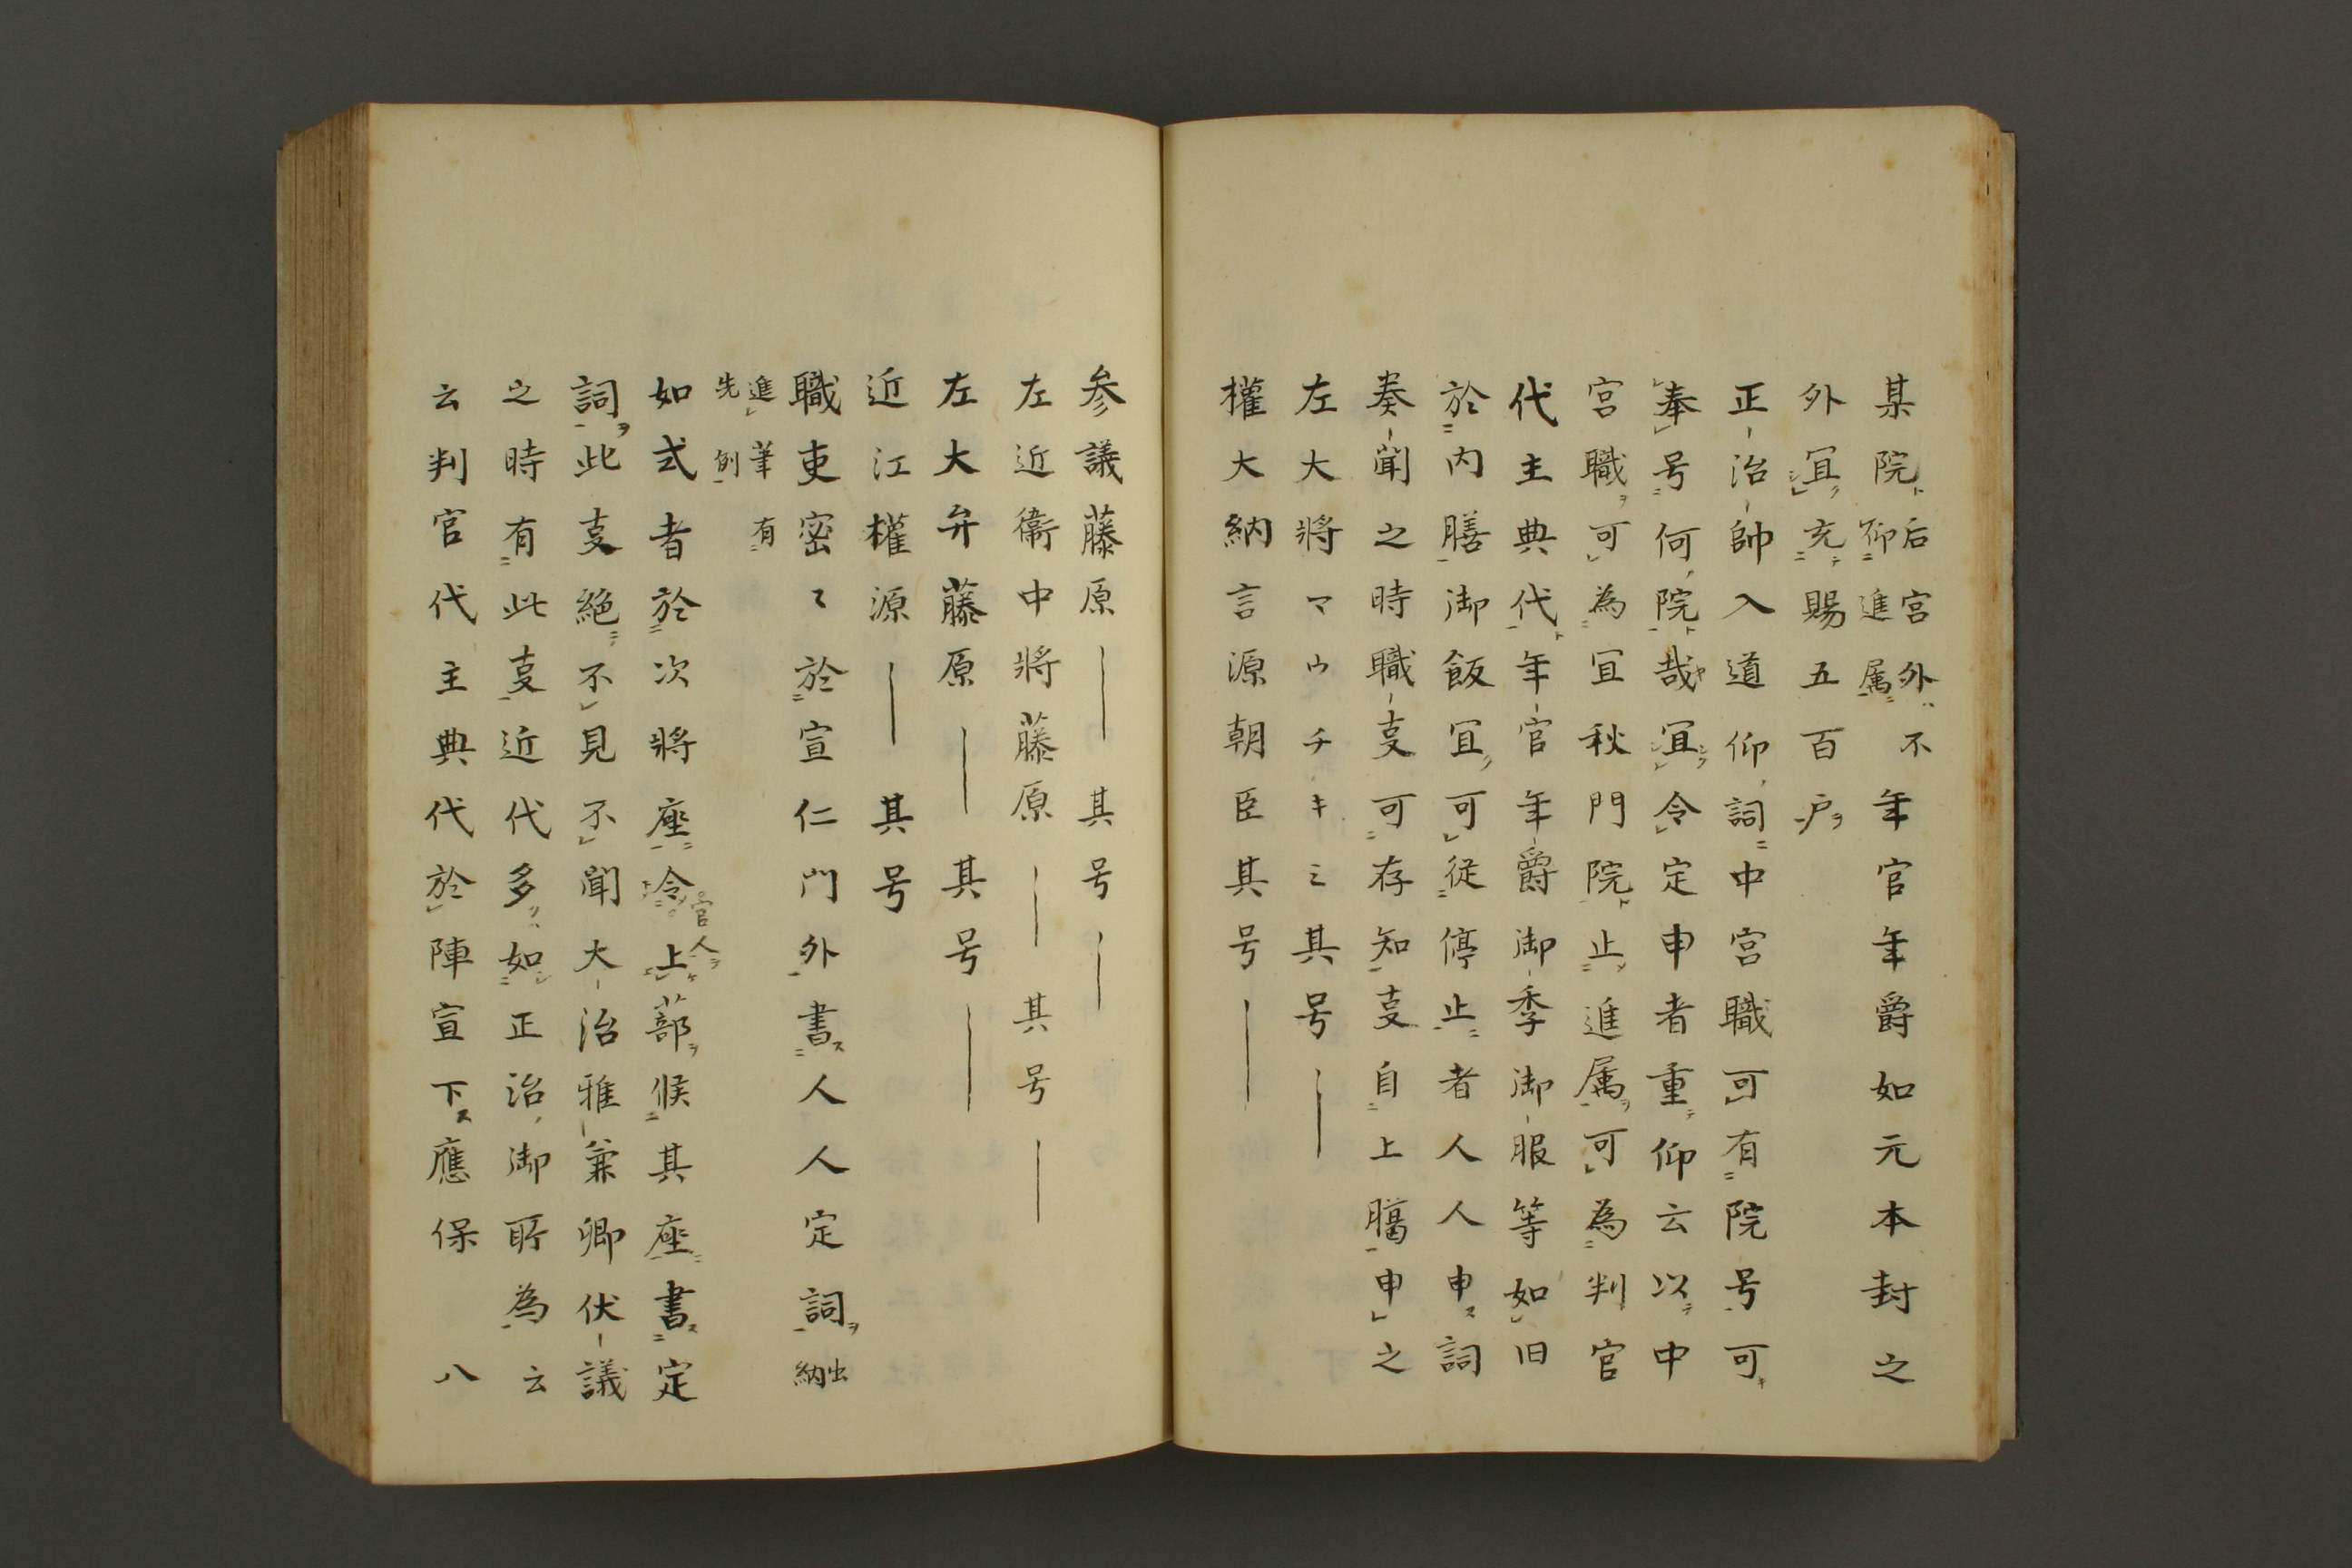 某院后宮外不仰進属年官年爵如元本封之
外冝充賜五百戸
正治帥入道仰詞中宮職可有院号可
奉号何院哉冝令定申者重仰云以中
宮職可為冝秋門院止進属可為判官
代主典代年官年爵御季御服等如旧
於内膳御飯冝可従停止者人人申詞
奏聞之時職㕝可存知㕝自上臈申之
左大將マウチキミ其号
權大納言源朝臣其号
参議藤原其号
左近衞中將藤原其号
左大弁藤原其号
近江權源其号
職吏密〻於宣仁門外書人人定詞出納
進筆有先例
如式者於次將座令官人上蔀候其座書定
詞此㕝絶不見不聞大治雅兼卿伏議
之時有此㕝近代多如正治御所為云
云判官代主典代於陣宣下應保八